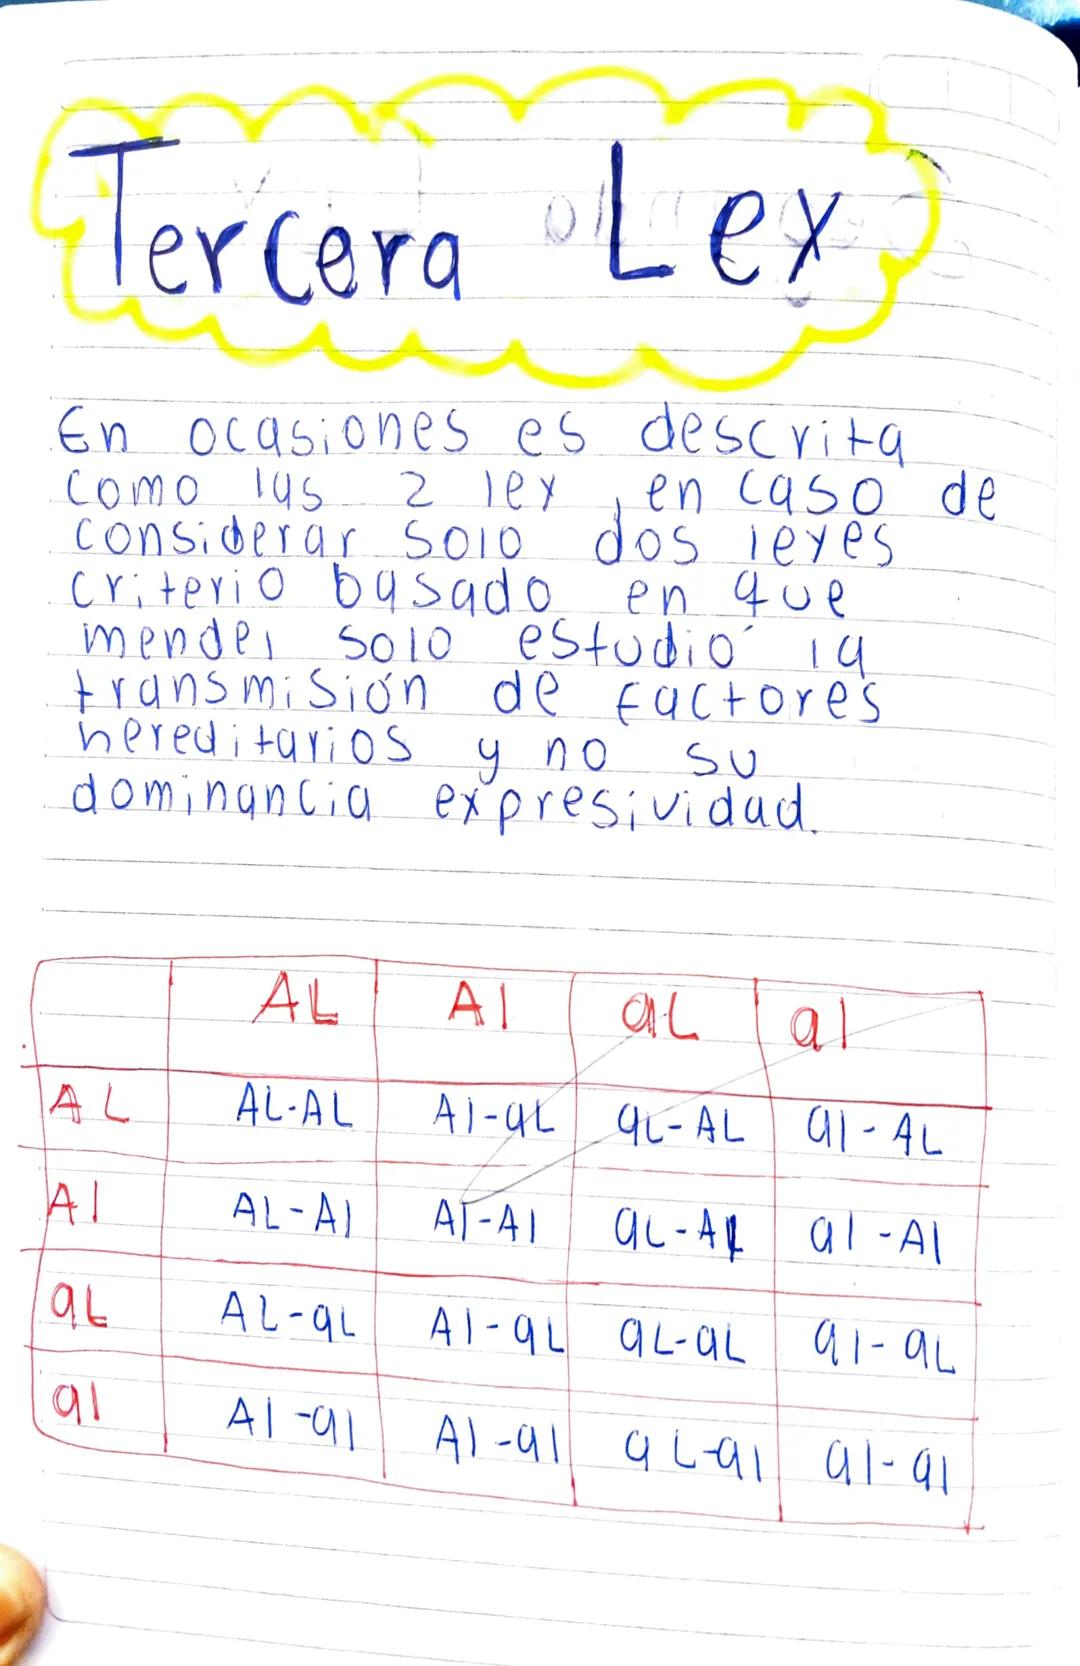 Tercera Ley
En ocasiones es descrita
como las 2 ley, en caso de
considerar solo dos leyes
criterio basado en que
mendel solo estudió la
transmisión de factores
hereditarios y no su
dominancia expresividad.
AL Al aL al
AL AL-AL Al-aL aL-AL al-AL
Al AL-Al Al-Al aL-Al al-Al
aL AL-aL Al-aL aL-aL al-aL
al Al-al Al-al aL-al al-al